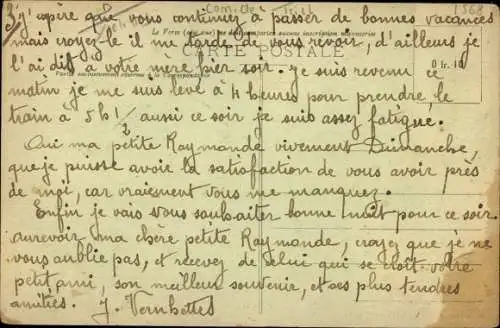 j'espère que vous continuez à passer de bonnes vacances
mais croyez-le il me tarde de vous revoir, d'ailleurs je
CARTE POSTALE
l'ai dit à votre mère hier soir. je suis revenu ce
0 fr. 40
matin je me suis levé à 4 heures pour prendre le
train à 5h 1/2 aussi ce soir je suis assez fatigué.
Oui ma petite Raymonde vivement Dimanche,
que je puisse avoir la satisfaction de vous avoir près
de moi, car vraiement vous me manquez.
Enfin je vais vous souhaiter bonne nuit pour ce soir
aurevoir ma chère petite Raymonde, croyez que je ne
vous oublie pas, et recevez de celui qui se croit votre
petit ami, son meilleur souvenir, et ses plus tendres
amitiés. J. Vernhettes